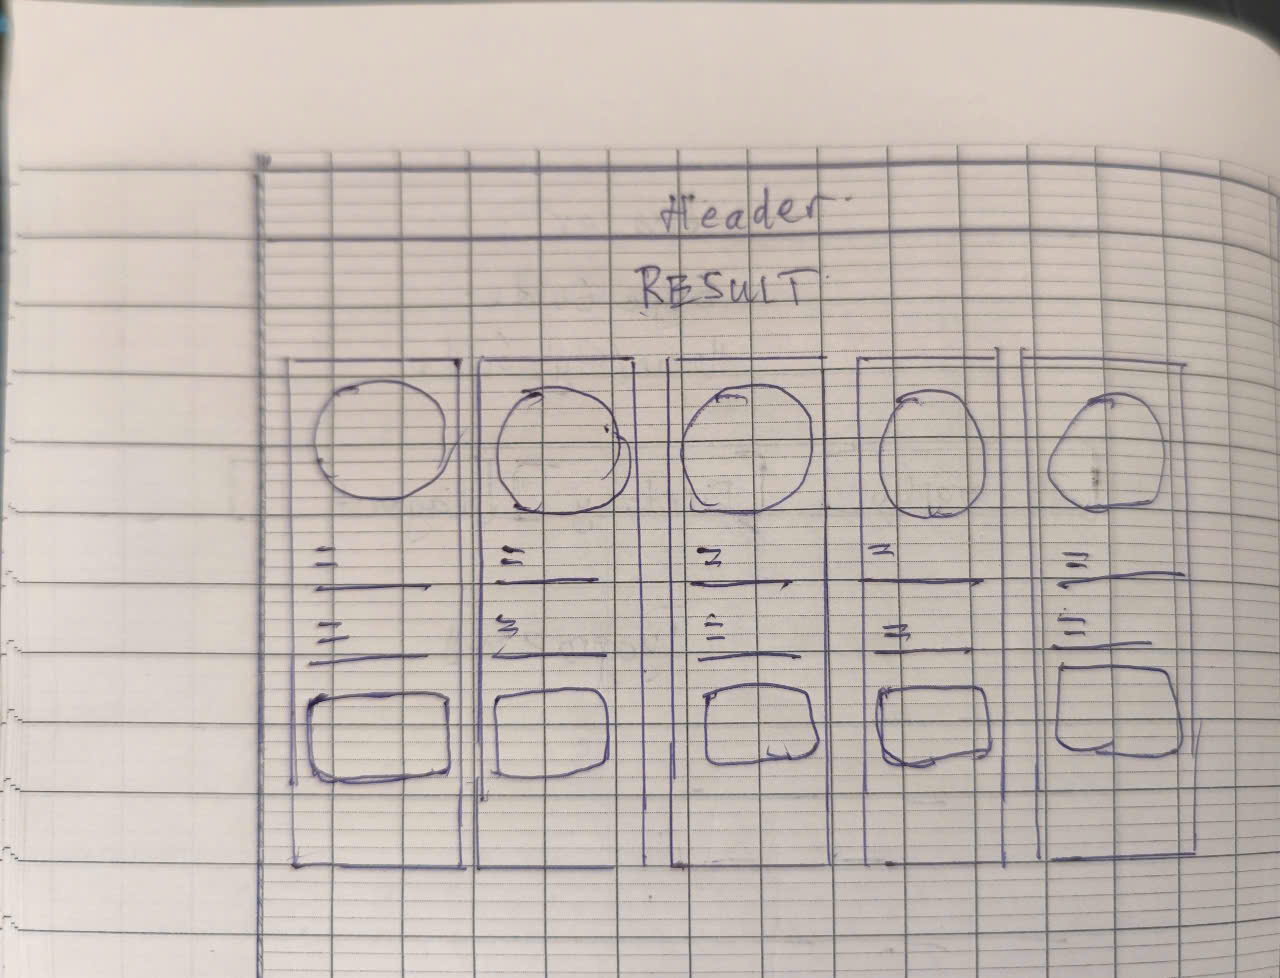 Header
RESULT